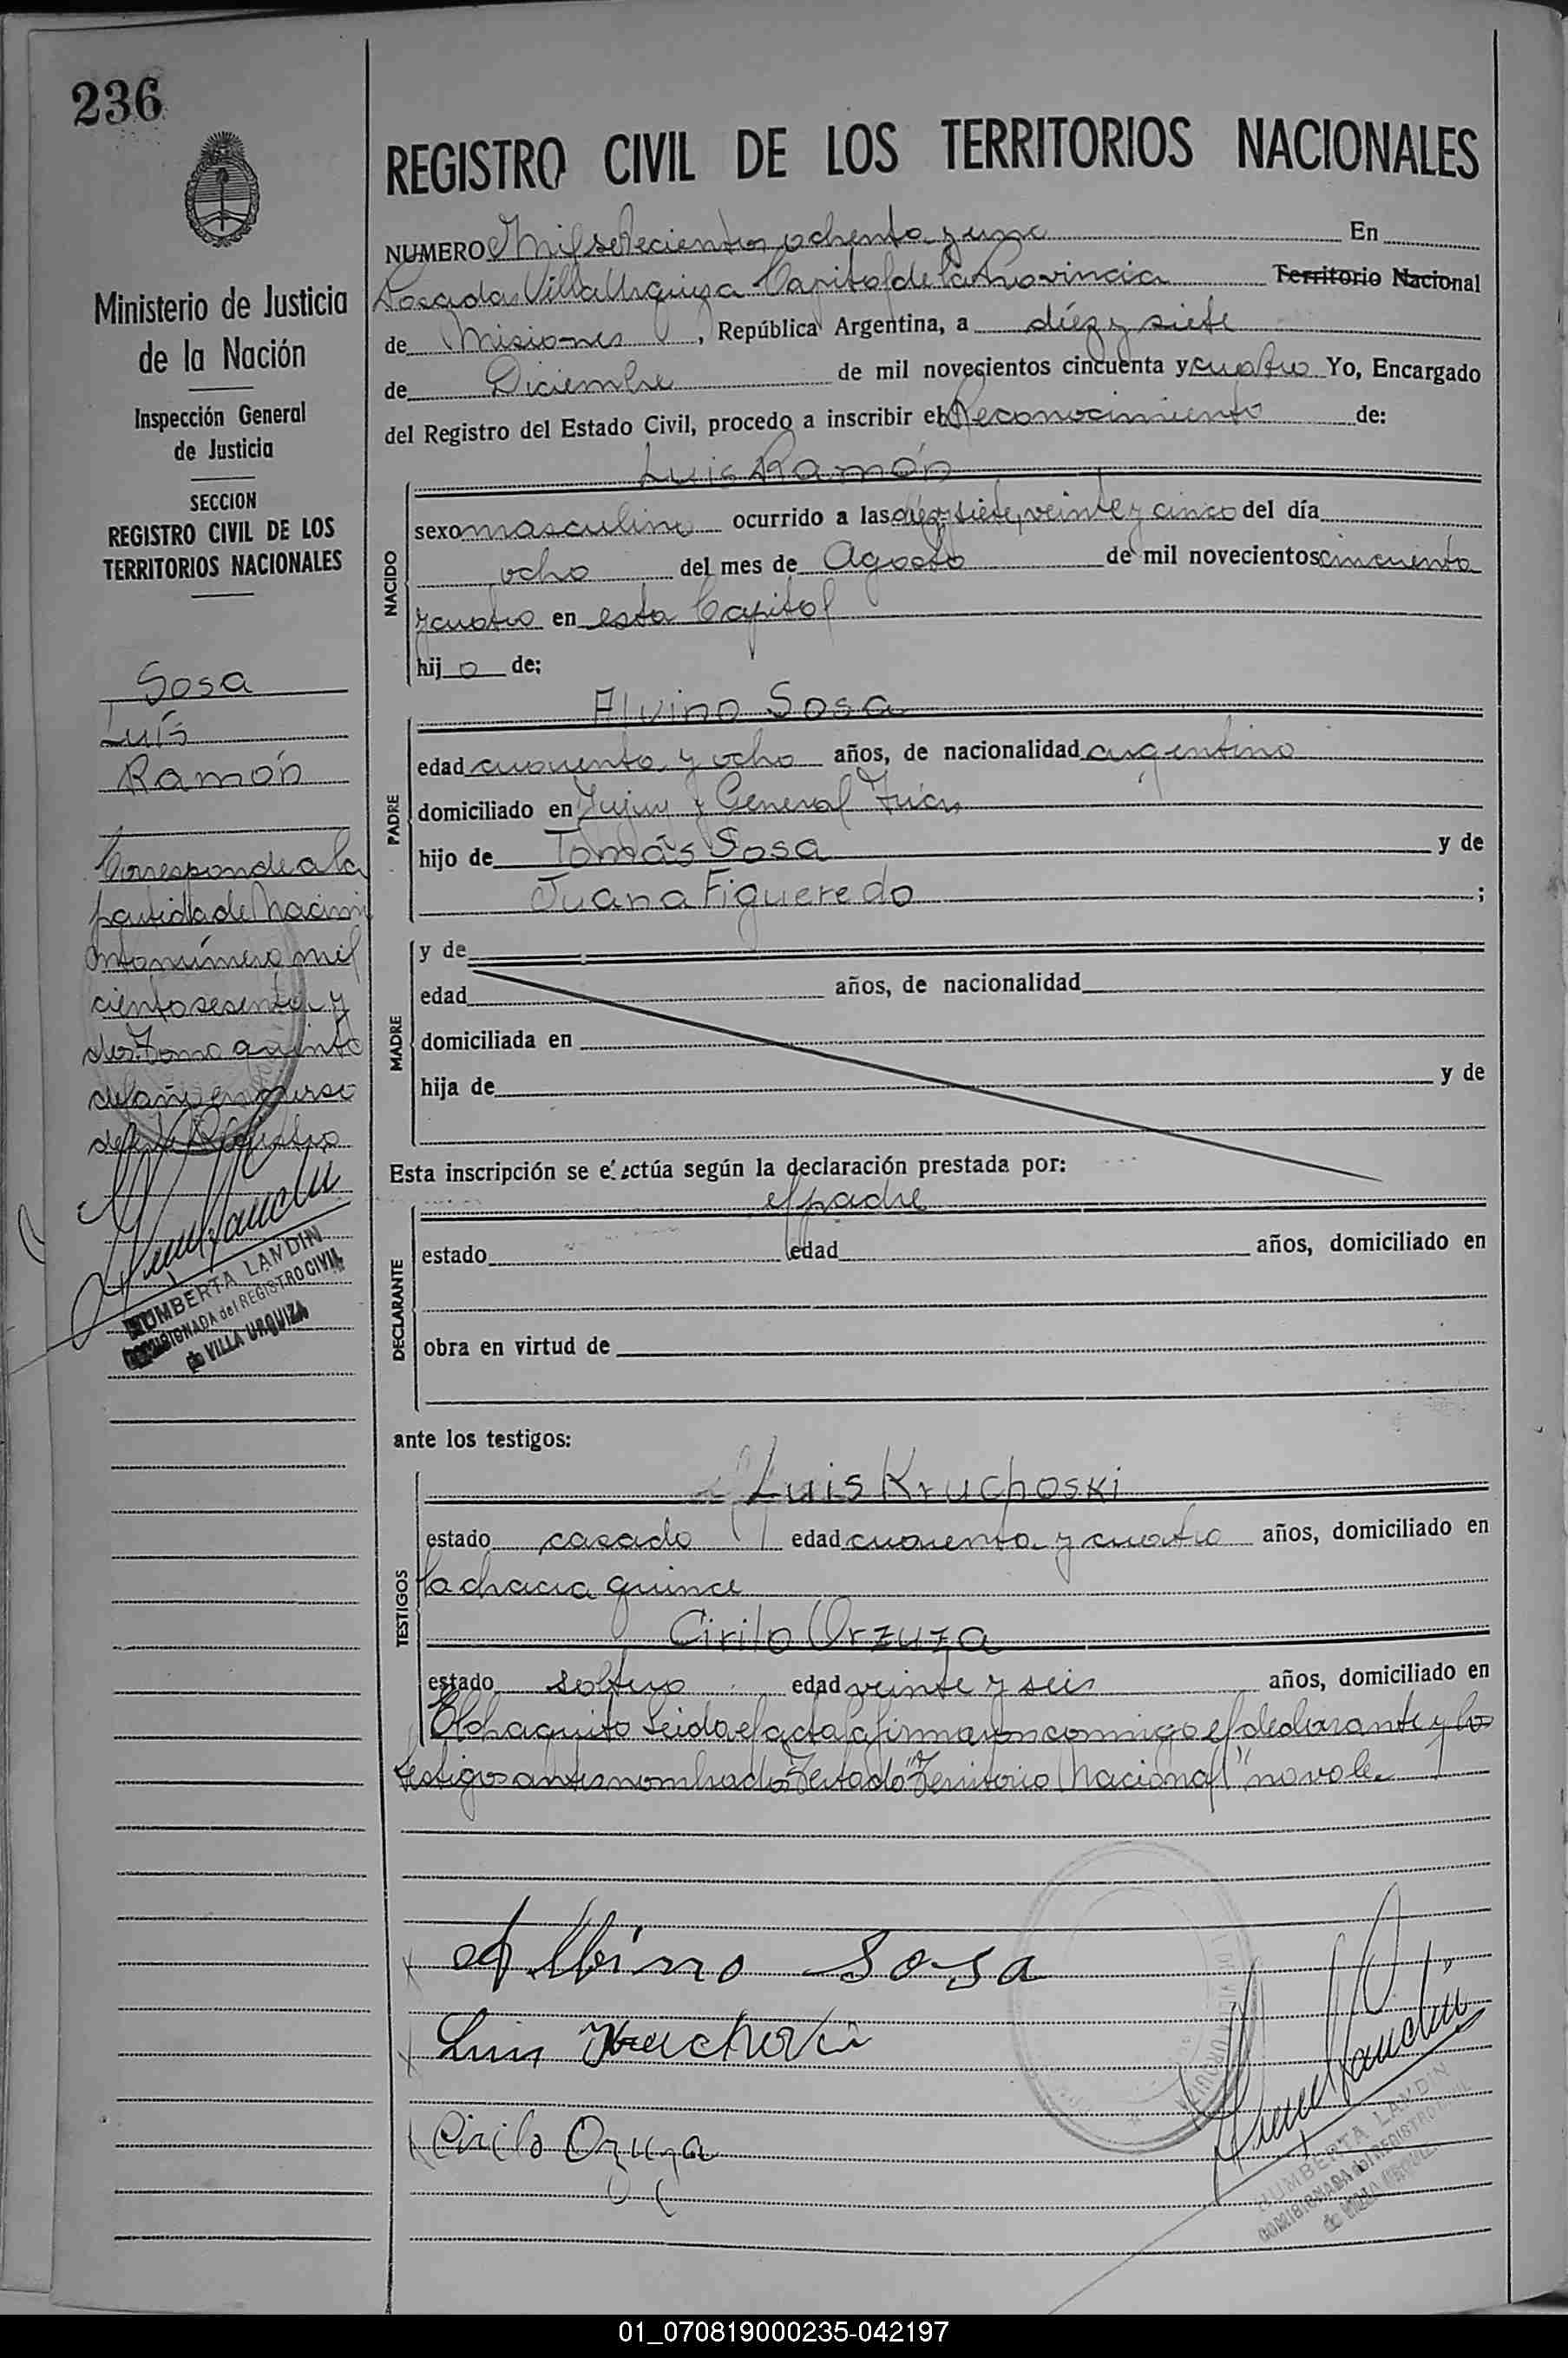 236
REGISTRO CIVIL DE LOS TERRITORIOS NACIONALES
Ministerio de Justicia
de la Nación
Inspección General
de Justicia
SECCION
REGISTRO CIVIL DE LOS
TERRITORIOS NACIONALES
Sosa
Luís
Ramón
Corresponde a la
partida de Nacimi
ento número mil
ciento sesenta y
dos Tomo quinto
del año en curso
de este Registro
HUMBERTA LANDIN
COMISIONADA del REGISTRO CIVIL
de VILLA URQUIZA
NUMERO Mil setecientos ochenta y uno En
Posadas Villa Urquiza Capital de la Provincia Territorio Nacional
de Misiones, República Argentina, a diéz y siete
de Diciembre de mil novecientos cincuenta y cuatro Yo, Encargado
del Registro del Estado Civil, procedo a inscribir el Reconocimiento de:
Luis Ramón
NACIDO
sexo masculino ocurrido a las diéz y siete, veinte y cinco del día
ocho del mes de Agosto de mil novecientos cincuenta
y cuatro en esta Capital
hij o de:
Alvino Sosa
PADRE
edad cuarenta y ocho años, de nacionalidad argentino
domiciliado en Jujuy y General Frías
hijo de Tomás Sosa y de
Juana Figueredo ;
MADRE
y de
edad años, de nacionalidad
domiciliada en
hija de y de
Esta inscripción se efectúa según la declaración prestada por:
el padre
DECLARANTE
estado edad años, domiciliado en
obra en virtud de
ante los testigos:
Luis Kruchoski
TESTIGOS
estado casado edad cuarenta y cuatro años, domiciliado en
la chacra quince
Cirilo Orzuza
estado soltero edad veinte y seis años, domiciliado en
El chaquito Leida el acta la firmaron conmigo el declarante y los
testigos antes nombrados Testado "Territorio Nacional" no vale.
Albino Sosa
Luis Kruchoski
Cirilo Ozuza
HUMBERTA LANDIN
COMISIONADA del REGISTRO CIVIL
01_070819000235-042197